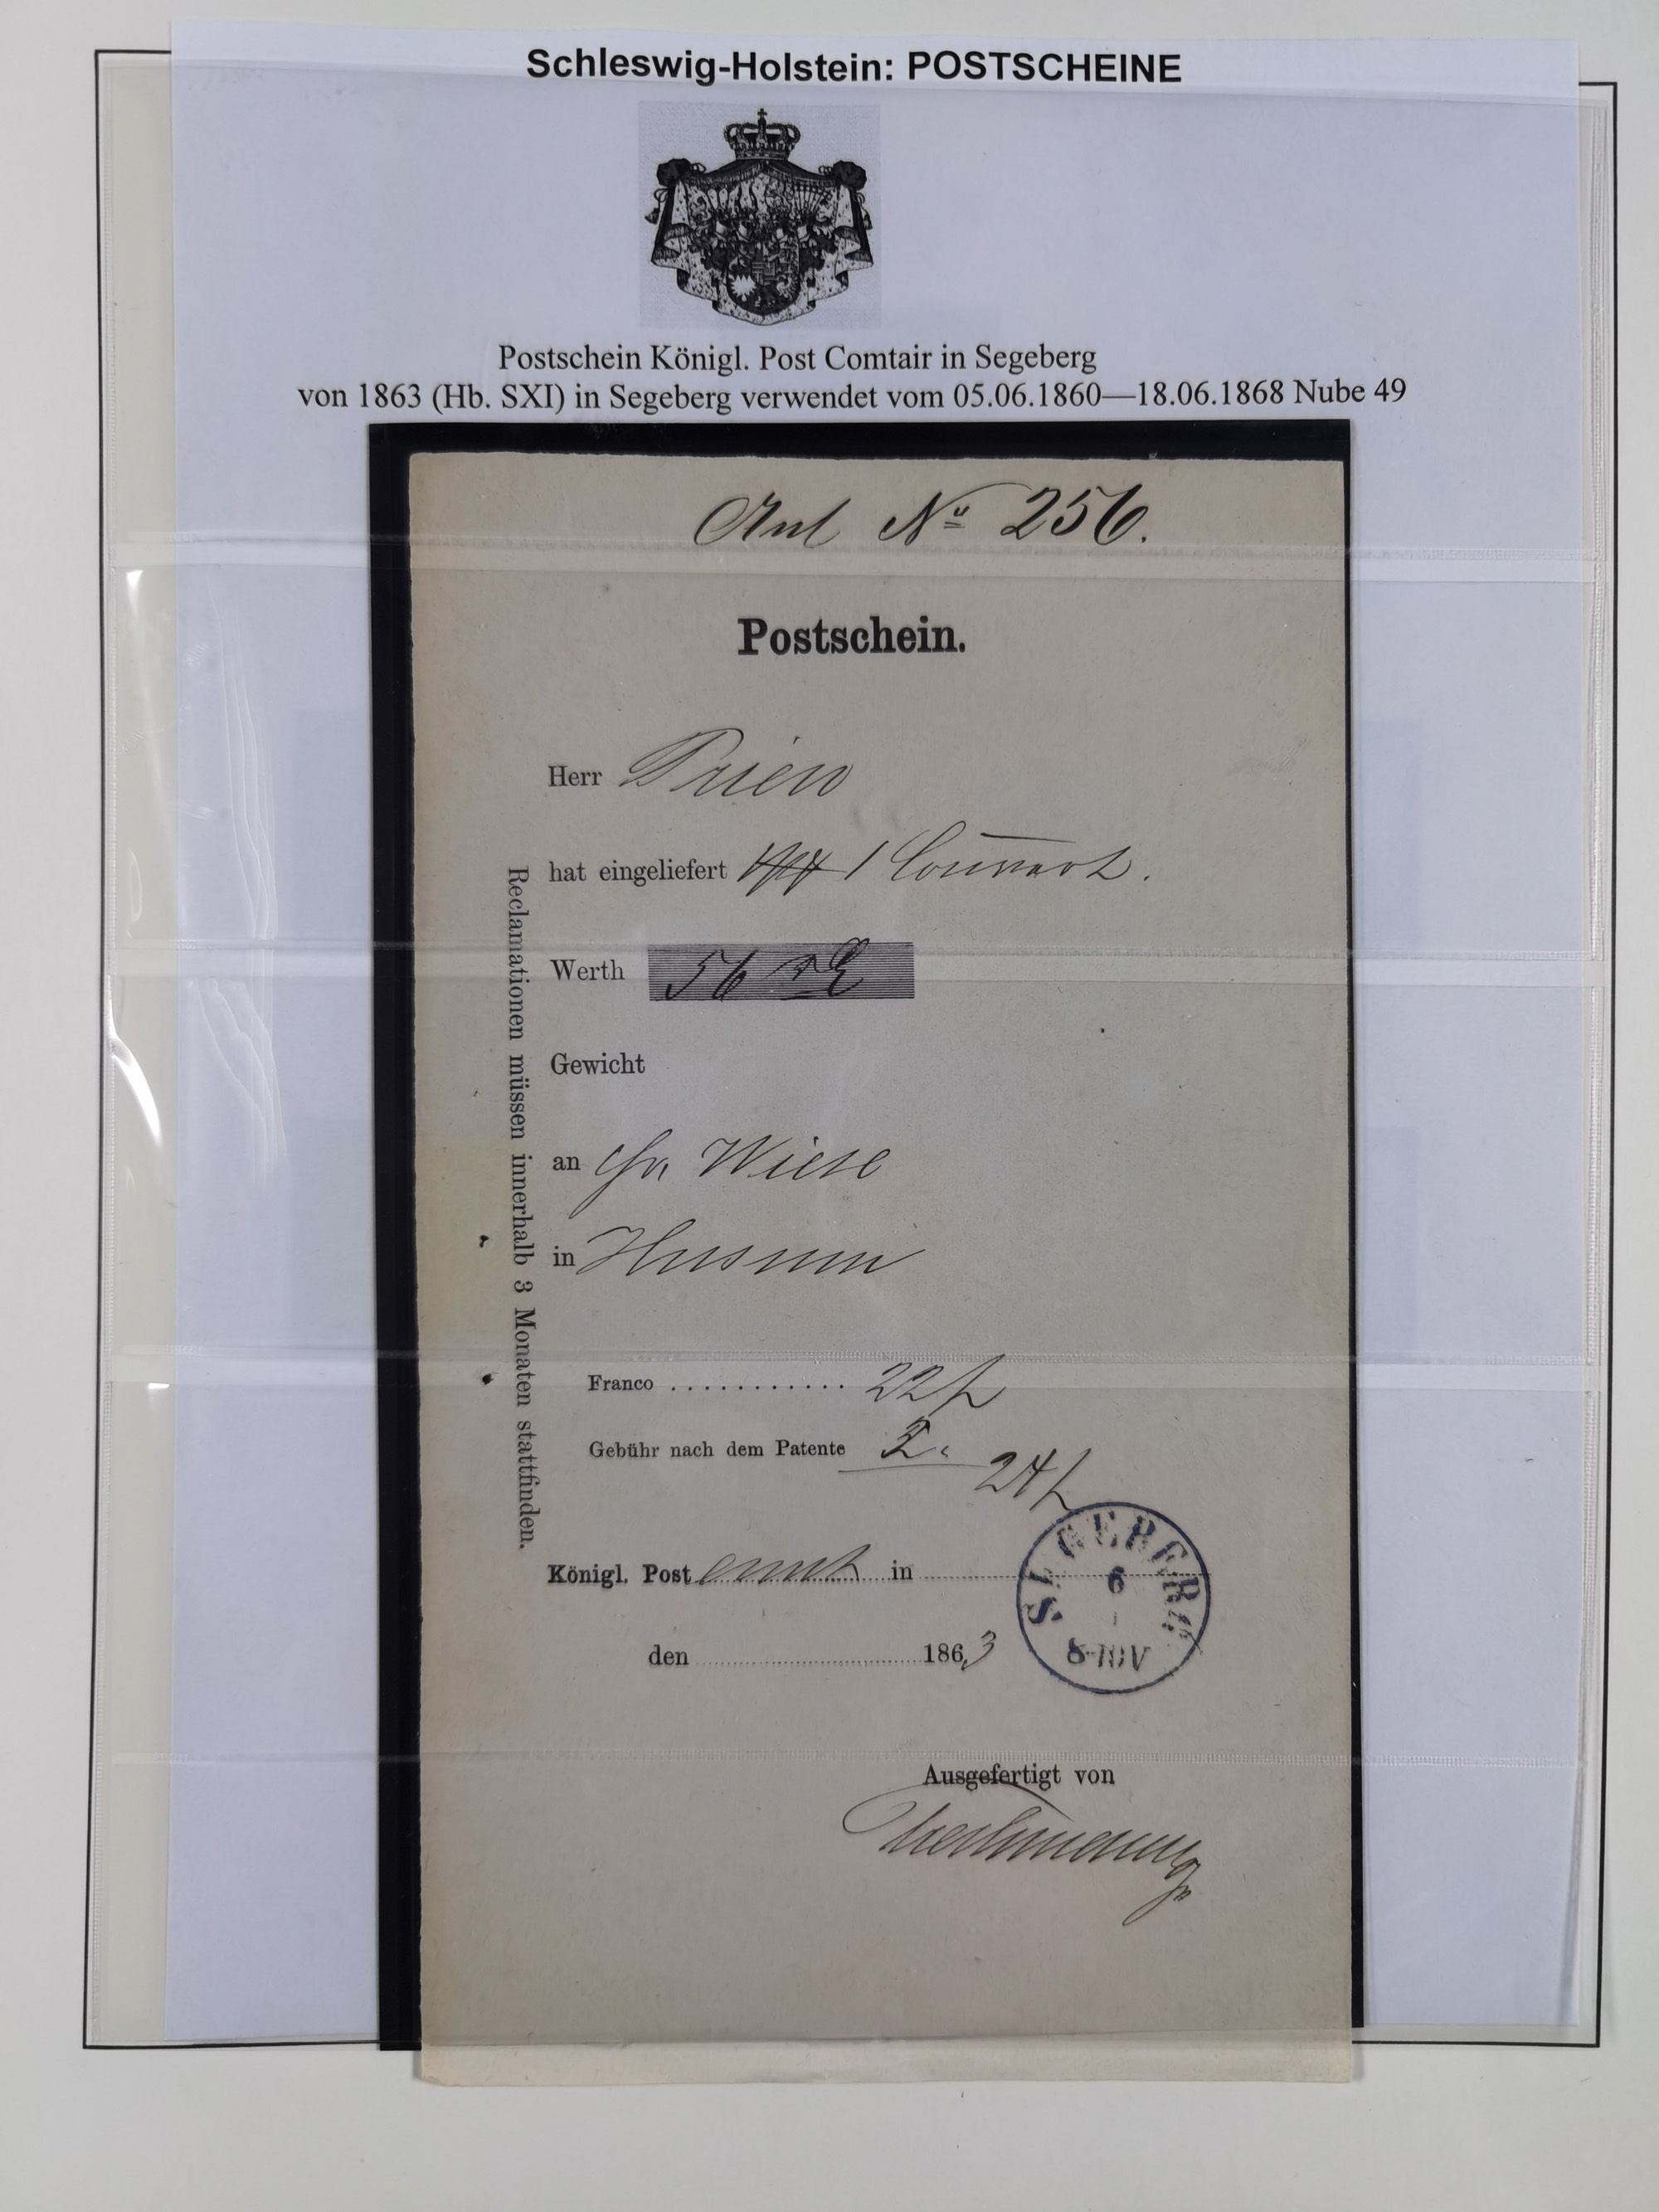 Schleswig-Holstein: POSTSCHEINE
Postschein Königl. Post Comtair in Segeberg
von 1863 (Hb. SXI) in Segeberg verwendet vom 05.06.1860—18.06.1868 Nube 49
No 256.
Postschein.
Herr Prien
hat eingeliefert 1 Couvert.
Werth 56
Gewicht
an Wiese
in Husum
Franco ........... 22
Gebühr nach dem Patente 2
24
Königl. Post in
SEGEBERG
6
8-10V
den 1863
Ausgefertigt von
Reclamationen müssen innerhalb 3 Monaten stattfinden.